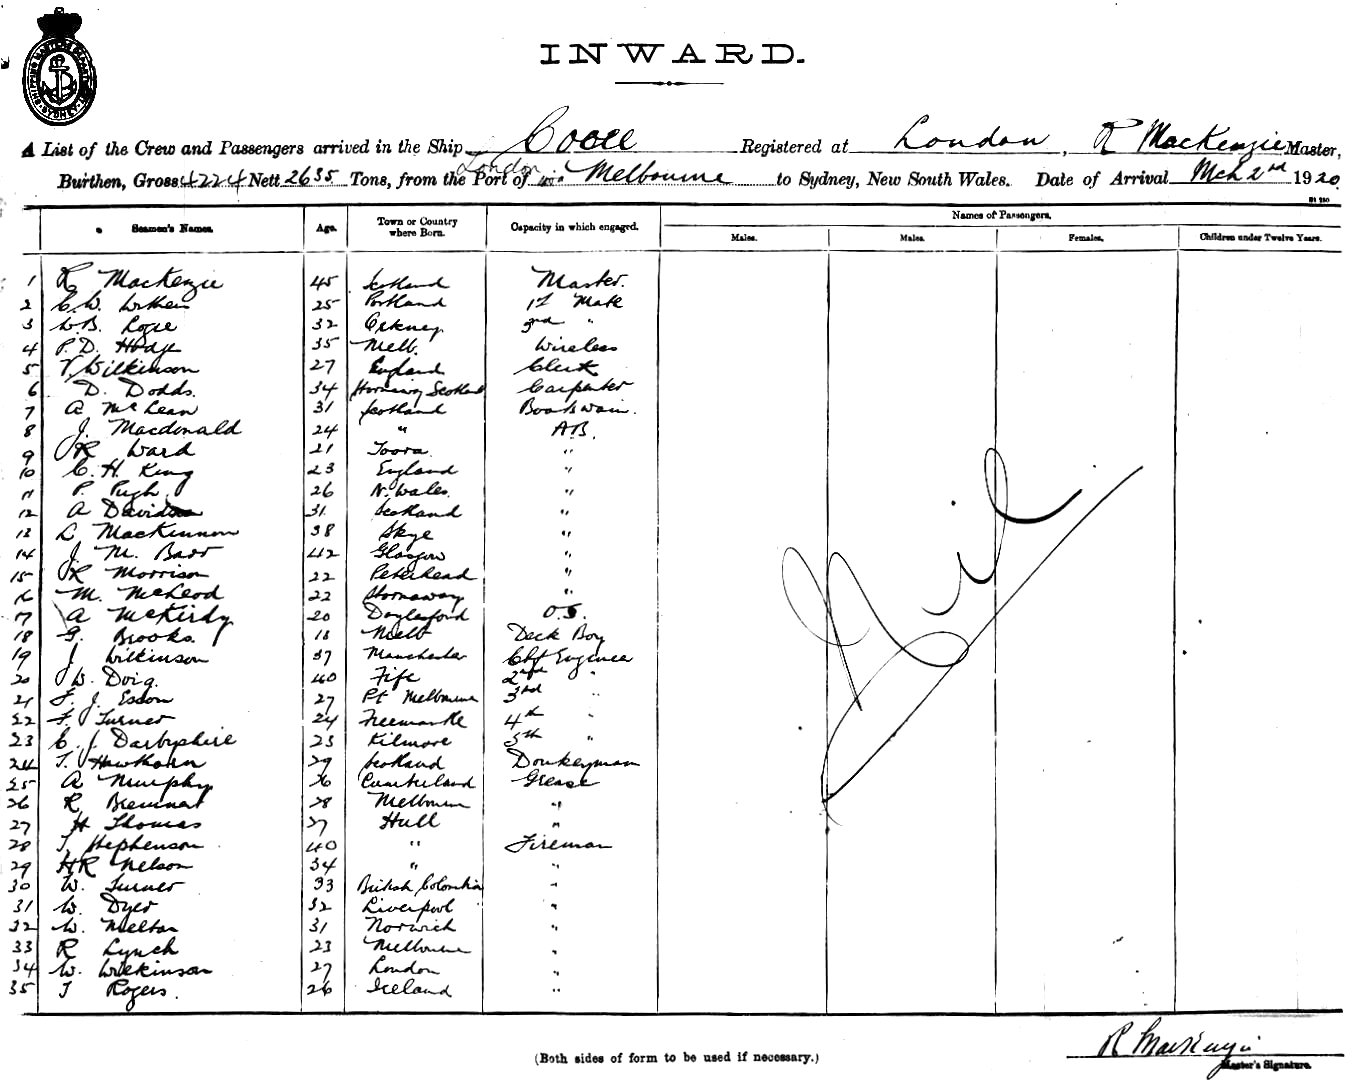 SHIPPING MASTER'S SYDNEY.
INWARD.
A List of the Crew and Passengers arrived in the Ship Registered at London, R MacKenzie Master,
Burthen, Gross 4224 Nett 2635 Tons, from the Port of London Melbourne to Sydney, New South Wales. Date of Arrival Mch 2nd 1920
Seamen's Names. Age. Town or Country where Born. Capacity in which engaged. Names of Passengers.
Males. Males. Females. Children under Twelve Years.
1 R MacKenzie 45 Scotland Master.
2 C.W. 25 Portland 1st Mate
3 W.B. Logie 32 Orkney 3rd "
4 P. D. Hodge 35 Melb. Wireless
5 V. Wilkinson 27 England Clerk
6 D. Dodds. 34 Scotland Carpenter
7 A McLean 31 Scotland Boatswain.
8 J. Macdonald 24 " A.B.
9 R Ward 21 Toora. "
10 C. H. King 23 England "
11 P. Pugh 26 N. Wales. "
12 A Davidson 31 Scotland "
13 L MacKinnon 38 Skye "
14 J. M. Barr 42 Glasgow "
15 R Morrison 22 Peterhead "
16 M. McLeod 22 Stornaway "
17 A McKirdy 20 Daylesford O.S.
18 G. Brooks. 18 Melb Deck Boy
19 J Wilkinson 37 Manchester Chf Engineer
20 W. Doig. 40 Fife 2nd "
21 F. J. Esdon 27 Pt Melbourne 3rd "
22 F. Turner 24 Freemantle 4th "
23 C. J. Darbyshire 23 Kilmore 5th "
24 T. Hawthorn 29 Scotland Donkeyman
25 A Murphy 26 Cumberland Greaser
26 R Bremner 28 Melbourne "
27 H Thomas 27 Hull "
28 T. Stephenson 40 " Fireman
29 HR Nelson 34 " "
30 W. Turner 33 British Colombia "
31 W. Dyer 32 Liverpool "
32 W. Melton 31 Norwich "
33 R Lynch 23 Melbourne "
34 W. Wilkinson 27 London "
35 T Rogers. 26 Iceland "
R MacKenzie
Master's Signature.
(Both sides of form to be used if necessary.)